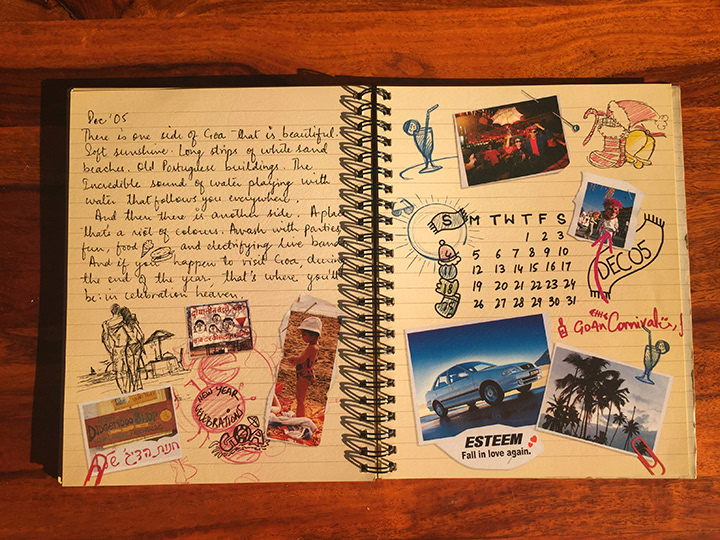 Dec '05
There is one side of Goa that is beautiful.
Soft sunshine. Long strips of white sand
beaches. Old Portuguese buildings. The
Incredible sound of water playing with
water that follows you everywhere.
And then there is another side. A place
that's a riot of colours. Awash with parties,
fun, food and electrifying live bands
And if you happen to visit Goa, during
the end of the year, that's where you'll
be: in celebration heaven.
NEW YEAR
CELEBRATIONS
GOA
S M T W T F S
1 2 3
5 6 7 8 9 10
12 13 14 15 16 17
19 20 21 22 23 24
26 27 28 29 30 31
DEC 05
the
Goan Carnival
ESTEEM
Fall in love again.